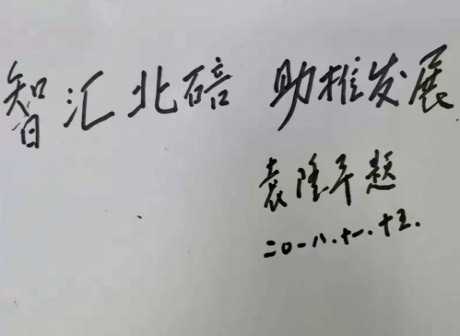 智汇北碚 助推发展
袁隆平题
二〇一八.十一.十三.